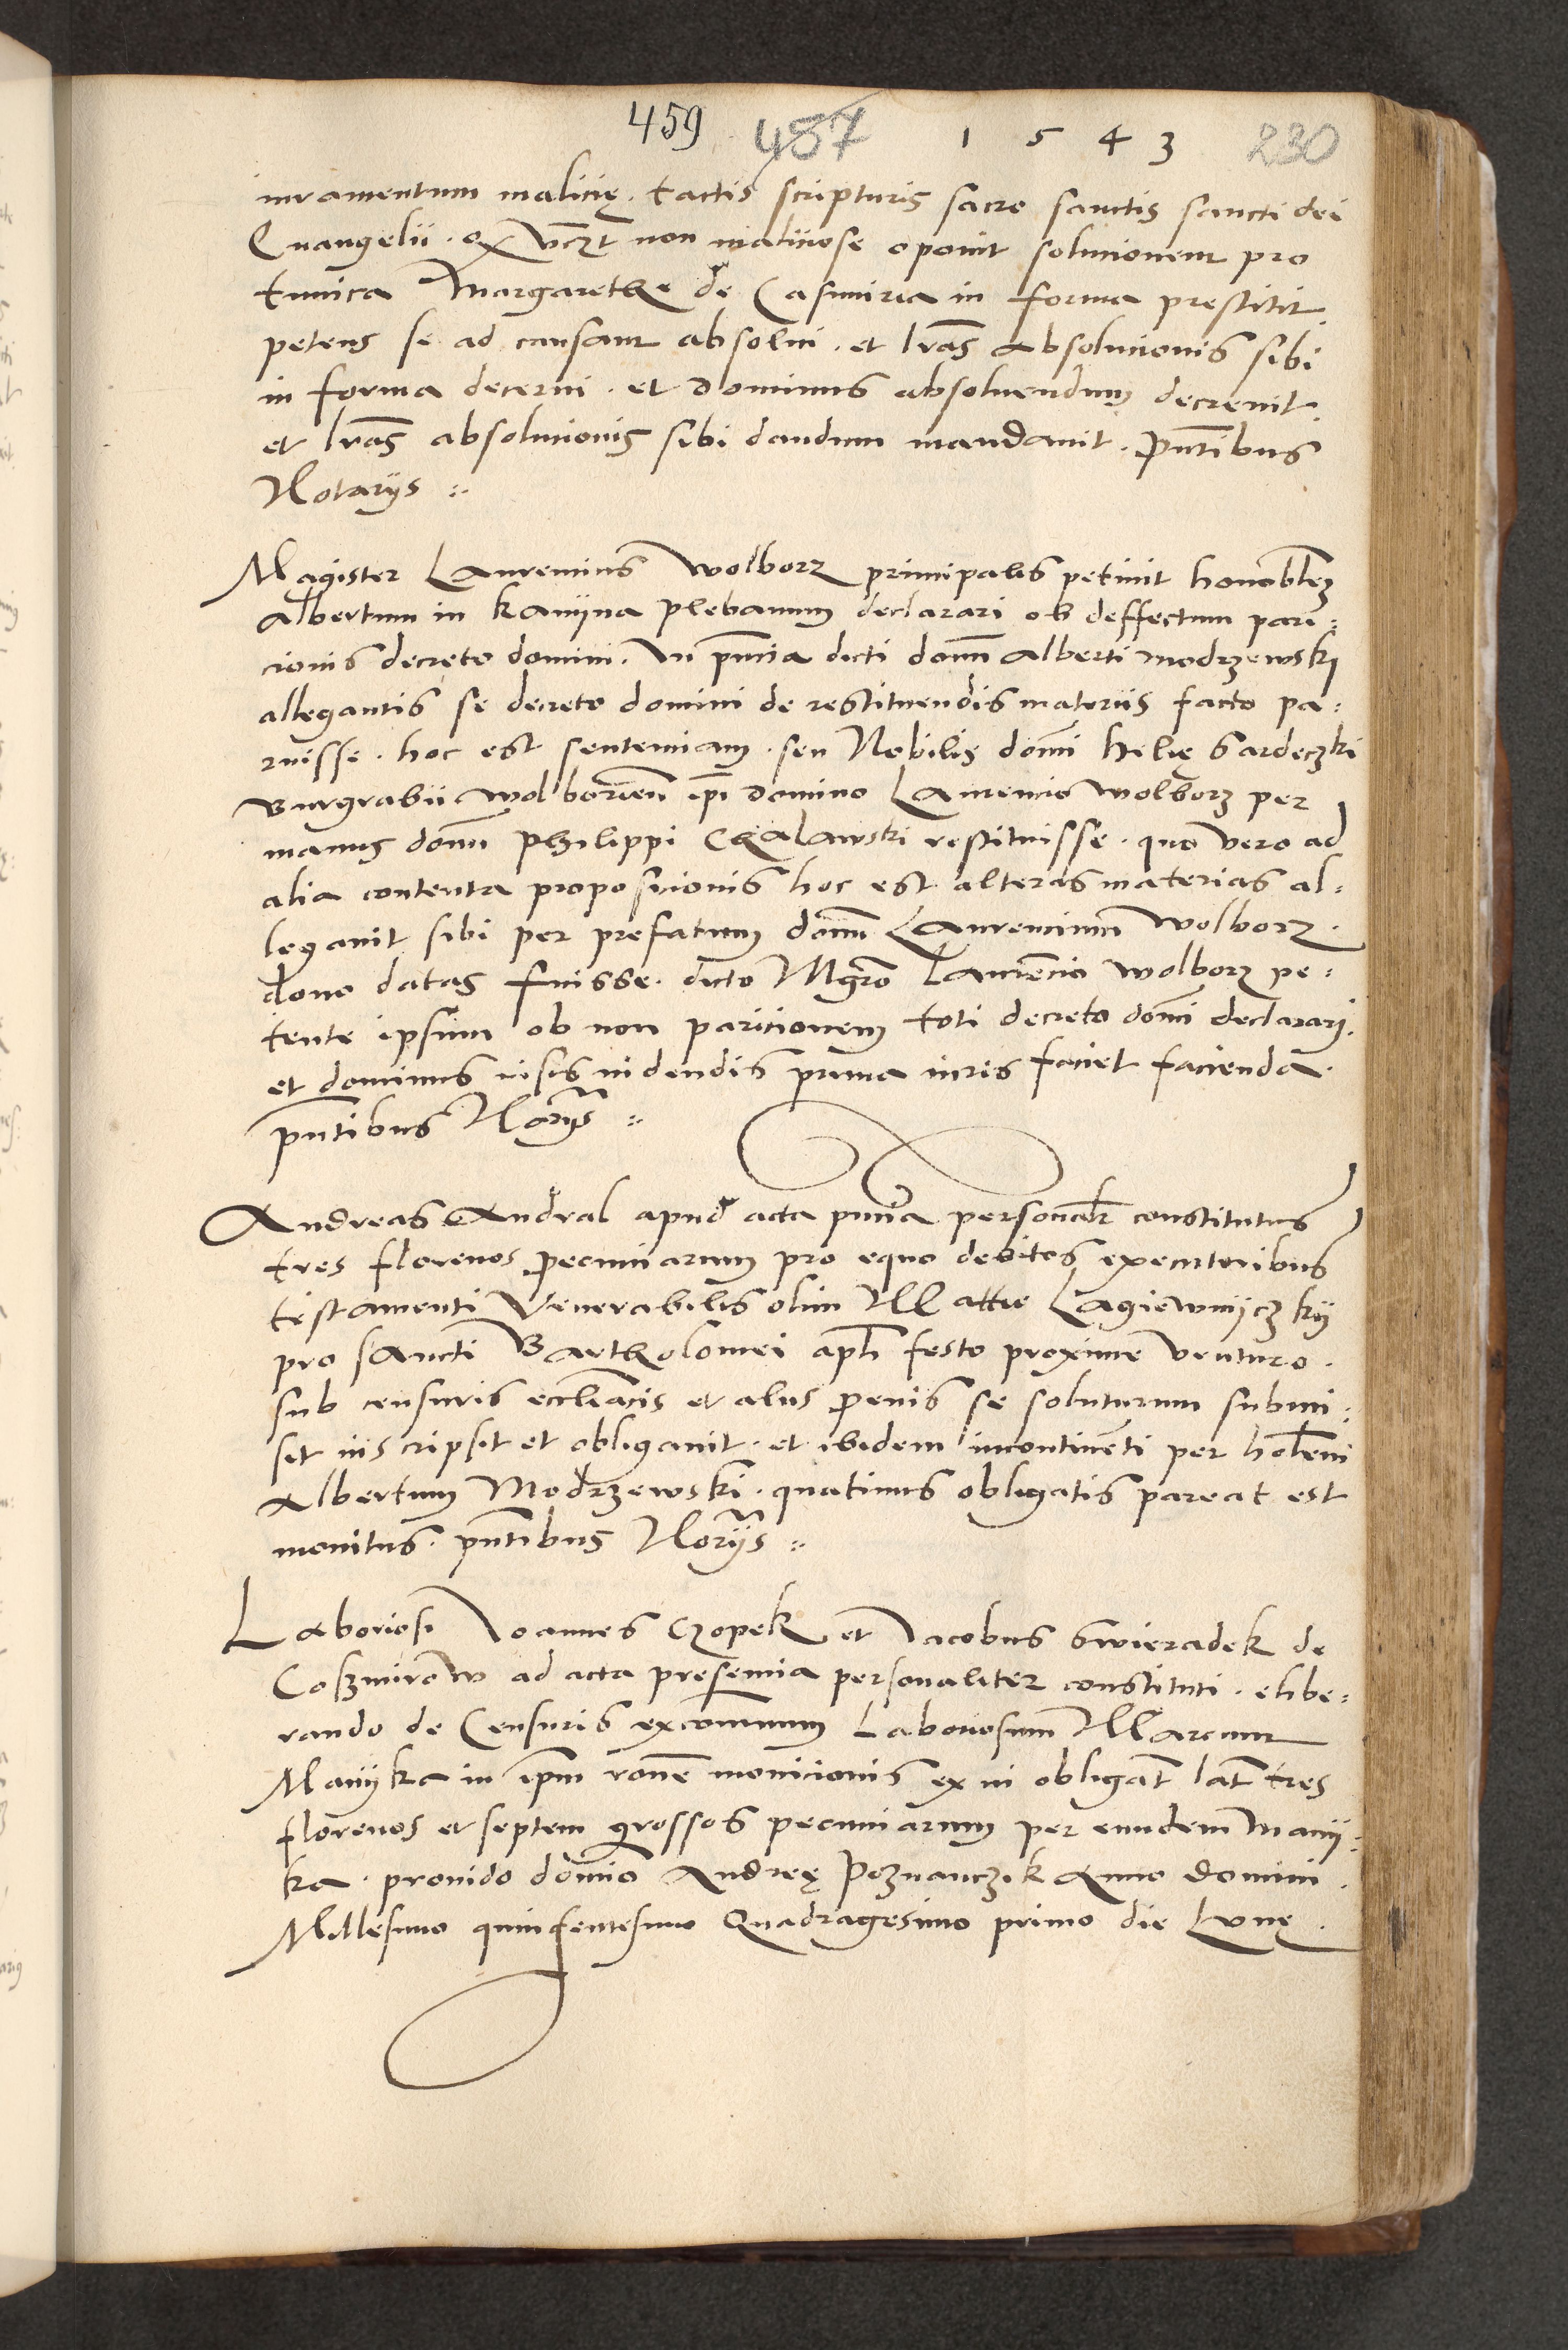 459 457 1543 230
iuramentum malicię. tactis scripturis sacro sanctis sancti dei
Euangelii. non maliciose oponit solucionem pro
tunica Margarethe de Casimiria in forma prestitit
petens se ad causam absolui. et lras absolucionis sibi
in forma decerni. et dominus absoluendum decreuit
et lras absolucionis sibi dandum mandauit. pntibus
Notarijs
Magister Laurencius Wolborz principalis petiuit honorablem
Albertum in Kamÿna plebanum declarari ob deffectum pari:
cionis decreto domini. In pncia dicti domi Alberti modrzewski
allegantis se decreto domini de restituendis materiis facto pa:
ruisse. hoc est sentenciam. seu Nobilis domi helię Gardeczki
Burgrabii wolborien ipi domino Laurencio wolborz per
manus domi philippi Chalawski restituisse. quo vero ad
alia contenta proposicionis hoc est alteras materias al:
legauit sibi per prefatum dom Laurencium Wolborz.
dono datas fuisse. dicto Mgro Laurencio wolborz pe:
tente ipsum ob non paricionem toti decreto domi declarari.
et dominus visis videndis prima iuris faciet facienda.
pntibus Norijs
Andreas Andral apud acta pncia personalr constitutus
tres florenos pecuniarum pro equo debitos executoribus
testamenti Venerabilis olim Mattie Lagiewnÿczkÿ
pro sancti Bartholomei apli festo proxime venturo.
sub censuris eccleacis et alijs penis se soluturum submi:
sit inscripsit et obligauit. et ibidem incontinenti per holem
Albertum Modrzewski. quatinus obligatis pareat est
monitus. pntibus Norÿs
Laboriosi Joannes Czopek et Jacobus Swieradek de
Coszmirow ad acta presencia personaliter constituti. elibe:
rando de Censuris excommum Laboriosum Marcum
Manÿka in ipm rone monicionis ex vi obligat lat tres
florenos et septem grossos pecuniarum per eundem Manÿ:
ka. prouido domino Andreę Poznanczik Anno domini.
Millesimo quingentesimo Quadragesimo primo die Lunę.